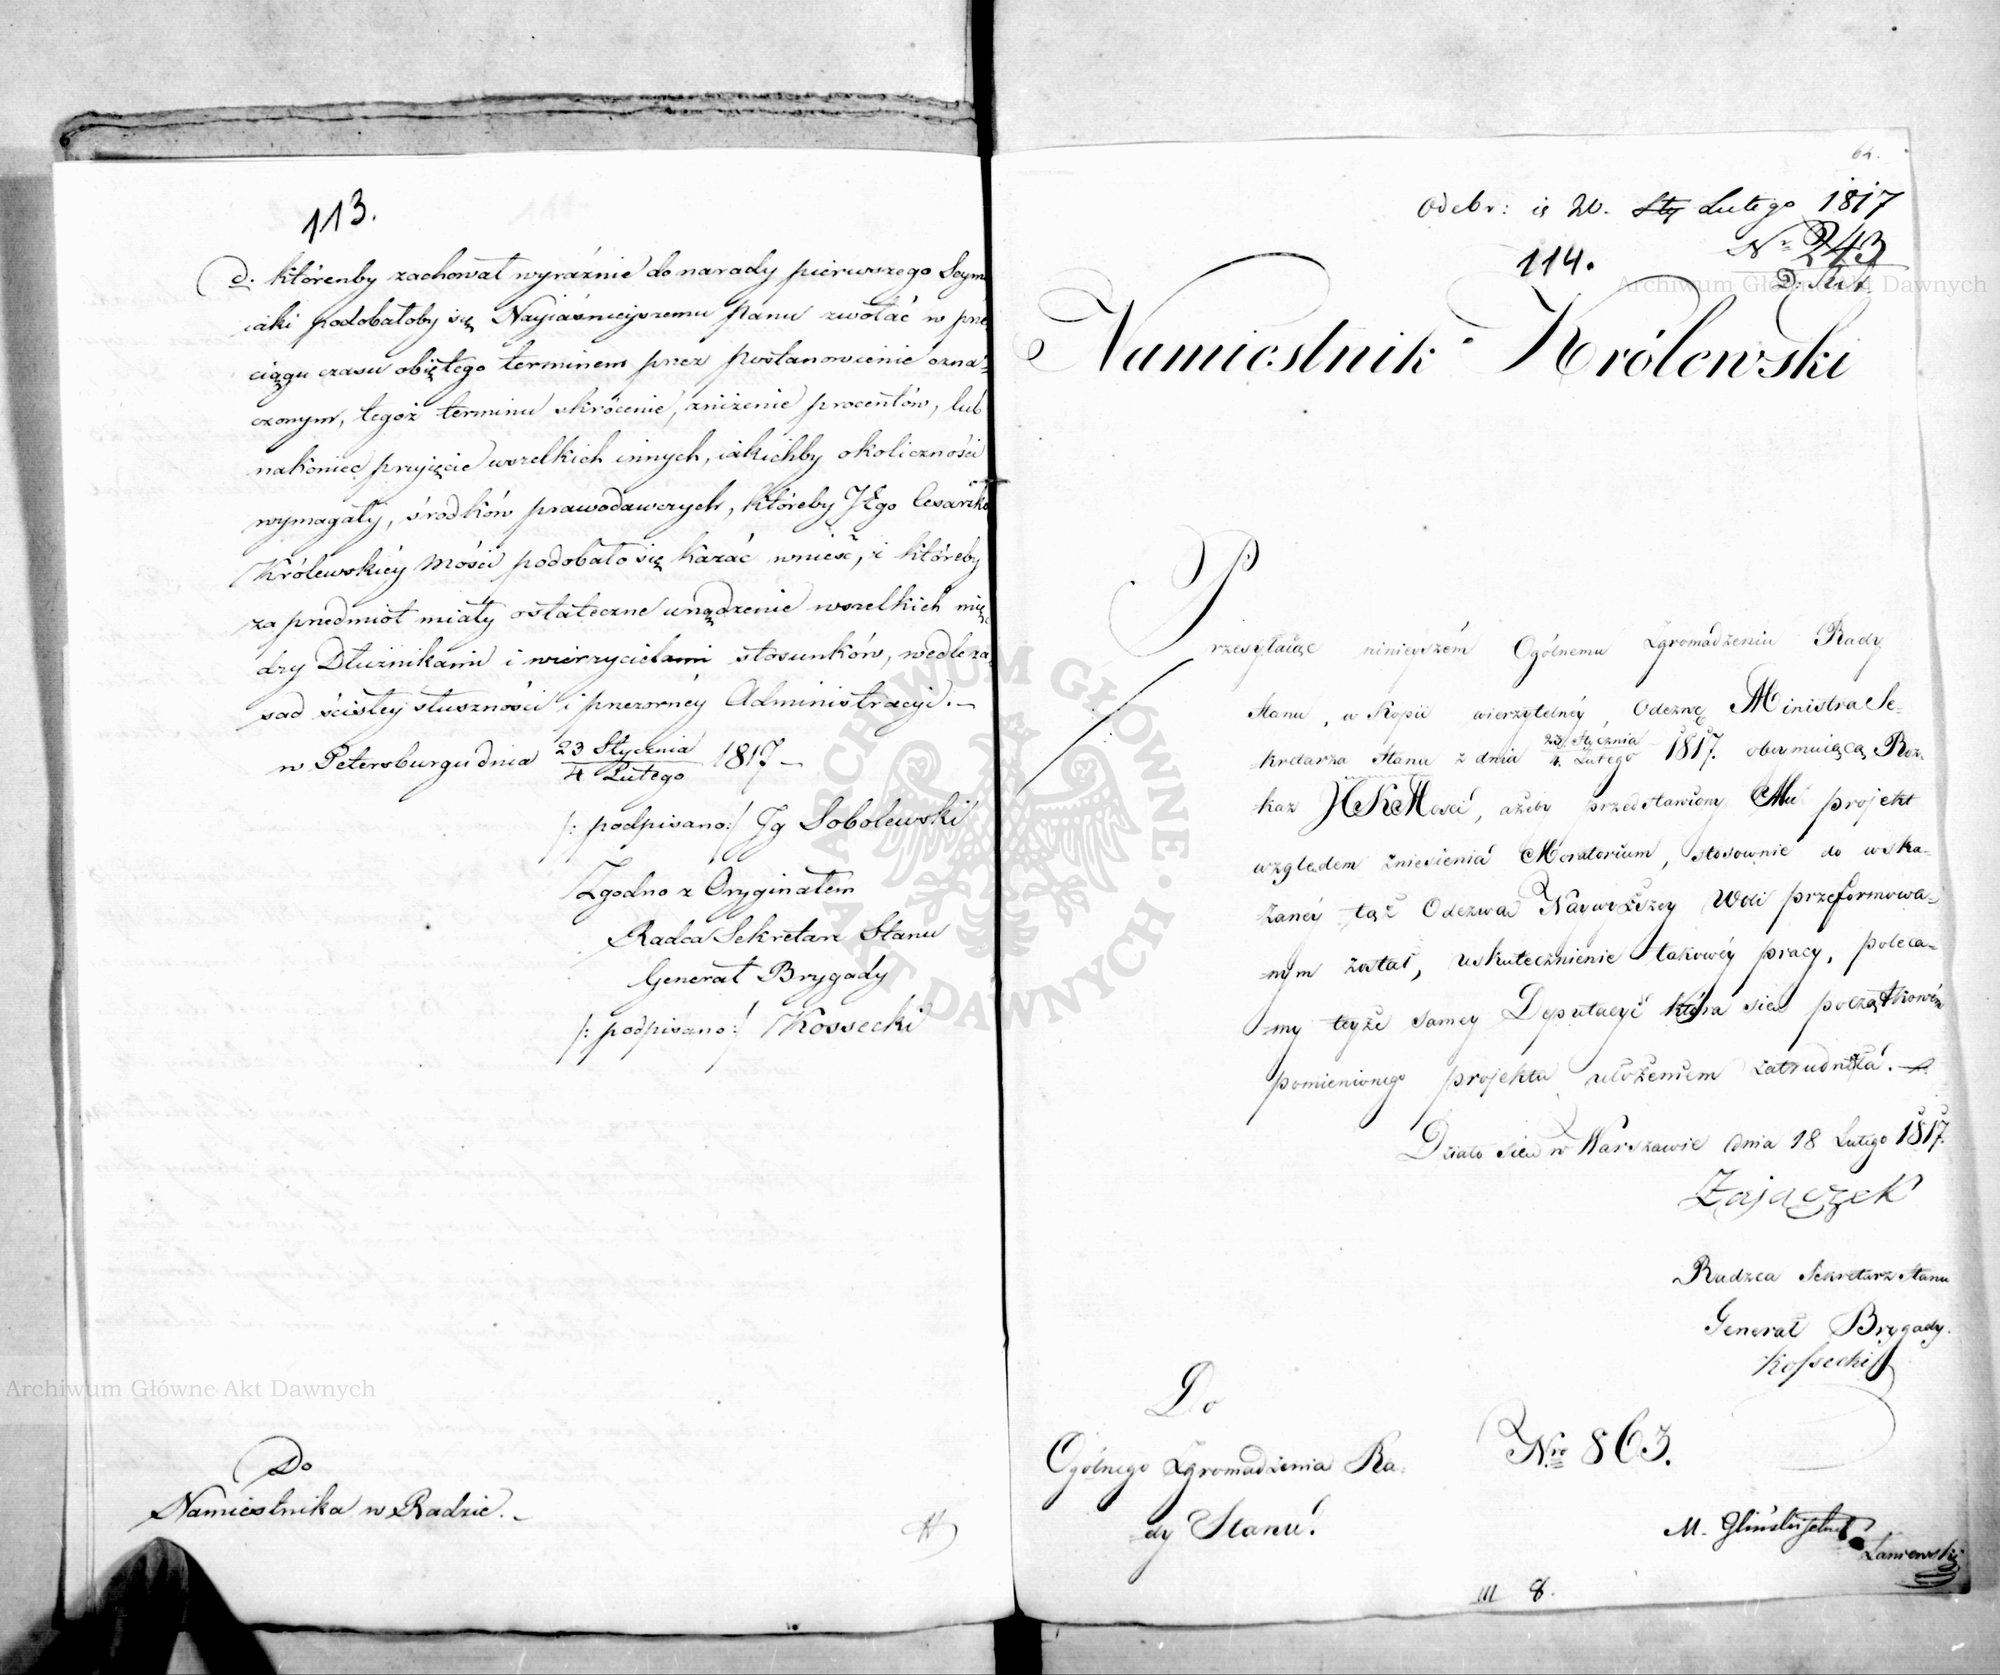 113.
d. któreby zachował wyraźnie do narady pierwszego Seym
iaki podobałoby się Nayiaśnieyszemu Panu zwołać w prze
ciągu czasu obiętego terminem przez postanowienie ozna-
czonym, tegoż terminu skrócenie, zniżenie procentów, lub
nakoniec przyięcie wszelkich innych, iakichby okoliczności
wymagały, środków prawodawczych, któreby JEgo Cesarsko
Królewskiéy Mości podobało się kazać wnieść, i któreby
za przedmiot miały ostateczne urządzenie wszelkich mię
dzy Dłużnikami i wierzycielami stosunków, wedle za
sad ścisłey słuszności i przezornéy Administracyi. –
w Petersburgu dnia 23 Stycznia / 4 Lutego 1817 –
/: podpisano:/ Ig Sobolewski
Zgodno z Oryginałem
Radca Sekretarz Stanu
Generał Brygady
/: podpisano:/ Kossecki
Do
Namiestnika w Radzie. –
64.
Odebr: is 20. Sty Lutego 1817
Nr 243
114.
D. Skł.
Namiestnik Królewski
Przesyłaiąc ninieyszém Ogólnemu Zgromadzeniu Rady
Stanu, w Kopii wierzytelnéy, Odezwę Ministra Se-
kretarza Stanu z dnia 23 Stycznia / 4. Lutego 1817. obeymuiącą Roz-
kaz JCKMosci, ażeby przedstawiony Mu projekt
względem zniesienia Moratorium, stosownie do wska-
zanéy tąż Odezwą Naywyższey Woli przeformowa-
nym został, uskutecznienie takowéy pracy, poleca-
my teyże samey Deputacyi która się początkowém
pomienionego projektu ułożeniem zatrudniła. –
Działo się w Warszawie dnia 18 Lutego 1817.
Zajączek
Radzca Sekretarz Stanu
Generał Brygady.
Kossecki
Do
Ogólnego Zgromadzenia Ra-
dy Stanu.
Nro 863.
M. Gliński
Łaniewski
III 8.
Archiwum Główne Akt Dawnych
Archiwum Główne Akt Dawnych
ARCHIWUM GŁÓWNE AKT DAWNYCH